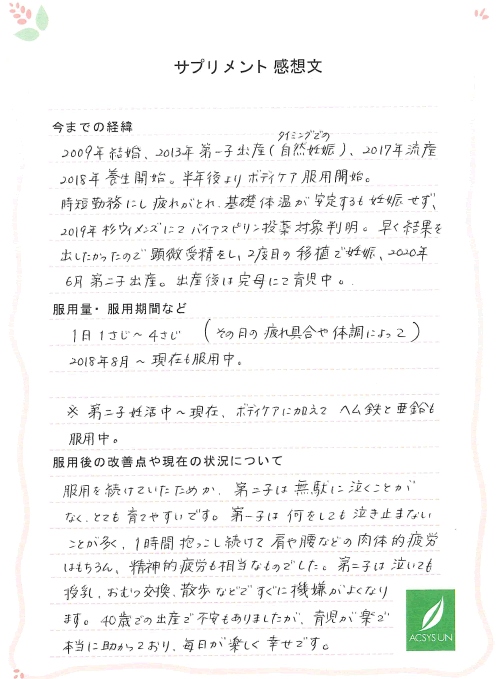 サプリメント 感想文
今までの経緯
タイミングでの
2009年 結婚、2013年 第一子出産(自然妊娠)、2017年 流産
2018年 養生開始。半年後より ボディケア 服用開始。
時短勤務にし 疲れがとれ、基礎体温が 安定するも 妊娠せず、
2019年 杉ウイメンズにて バイアスピリン投薬 対象判明。早く結果を
出したかったので 顕微受精をし、2度目の 移植で妊娠、2020年
6月 第二子出産。出産後は完母にて育児中。
服用量・服用期間など
1日 1さじ〜4さじ (その日の 疲れ具合や 体調によって)
2018年8月〜 現在も服用中。
※ 第二子 妊活中〜現在、ボディケアに加えて ヘム鉄と 亜鉛も
服用中。
服用後の改善点や現在の状況について
服用を 続けていたためか、第二子は 無駄に 泣くことが
なく、とても 育てやすいです。第一子は 何をしても 泣き止まない
ことが多く、1時間 抱っこし続けて 肩や腰などの 肉体的疲労
はもちろん、精神的疲労も相当なものでした。第二子は 泣いても
授乳、おむつ交換、散歩 などで すぐに 機嫌がよくなり
ます。40歳での出産で 不安もありましたが、育児が 楽で
本当に助かっており、毎日が 楽しく 幸せです。
ACSYSUN